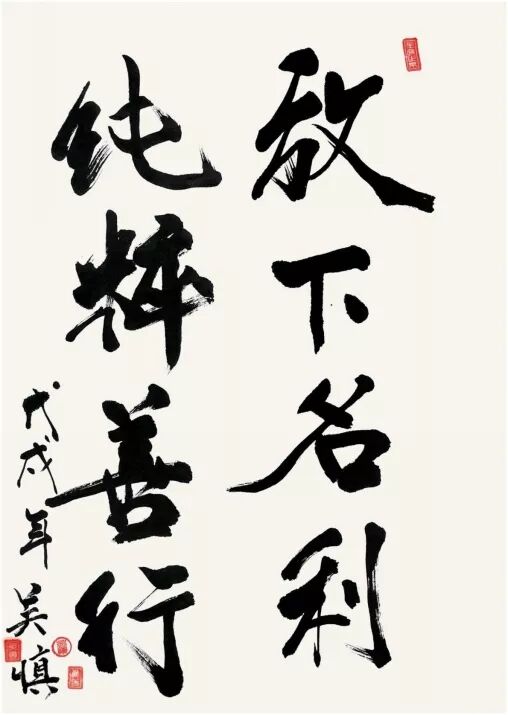 放下名利
纯粹善行
戊戌年
吴慎